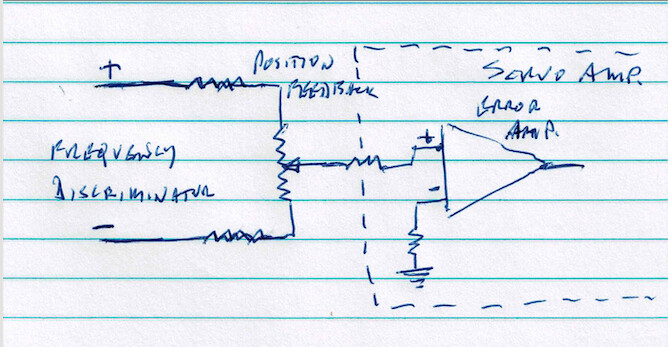 +
POSITION
FEEDBACK
SERVO AMP.
ERROR
AMP.
FREQUENCY
DISCRIMINATOR
+
-
-